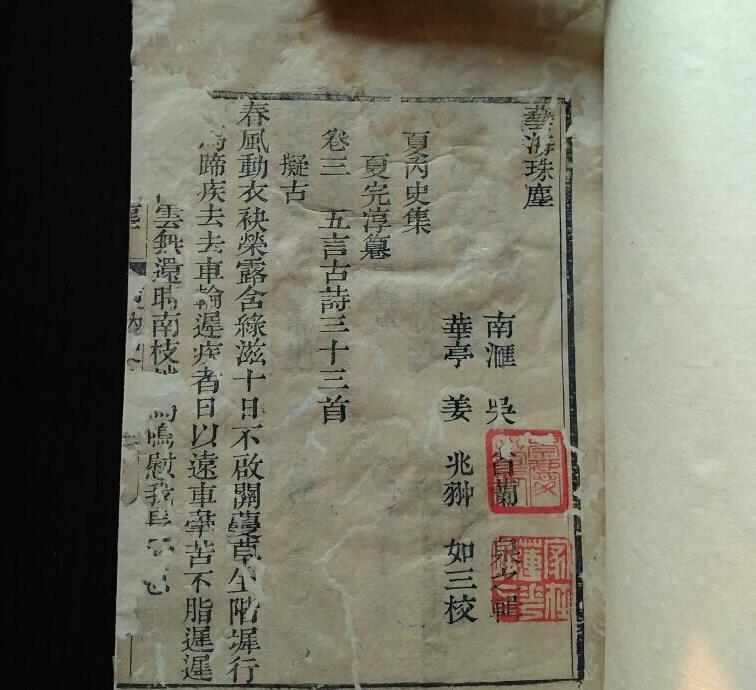 藝海珠塵
南滙 吳省蘭 泉之輯
華亭 姜兆翀 如三校
夏內史集
夏完淳著
卷三 五言古詩三十三首
擬古
春風動衣袂榮露含綠滋十日不啟關蔓草生階墀行
馬蹄疾去去車輪遲疾者日以遠車牽苦不脂遲遲
雲無還時南枝 鳴慰我
塵